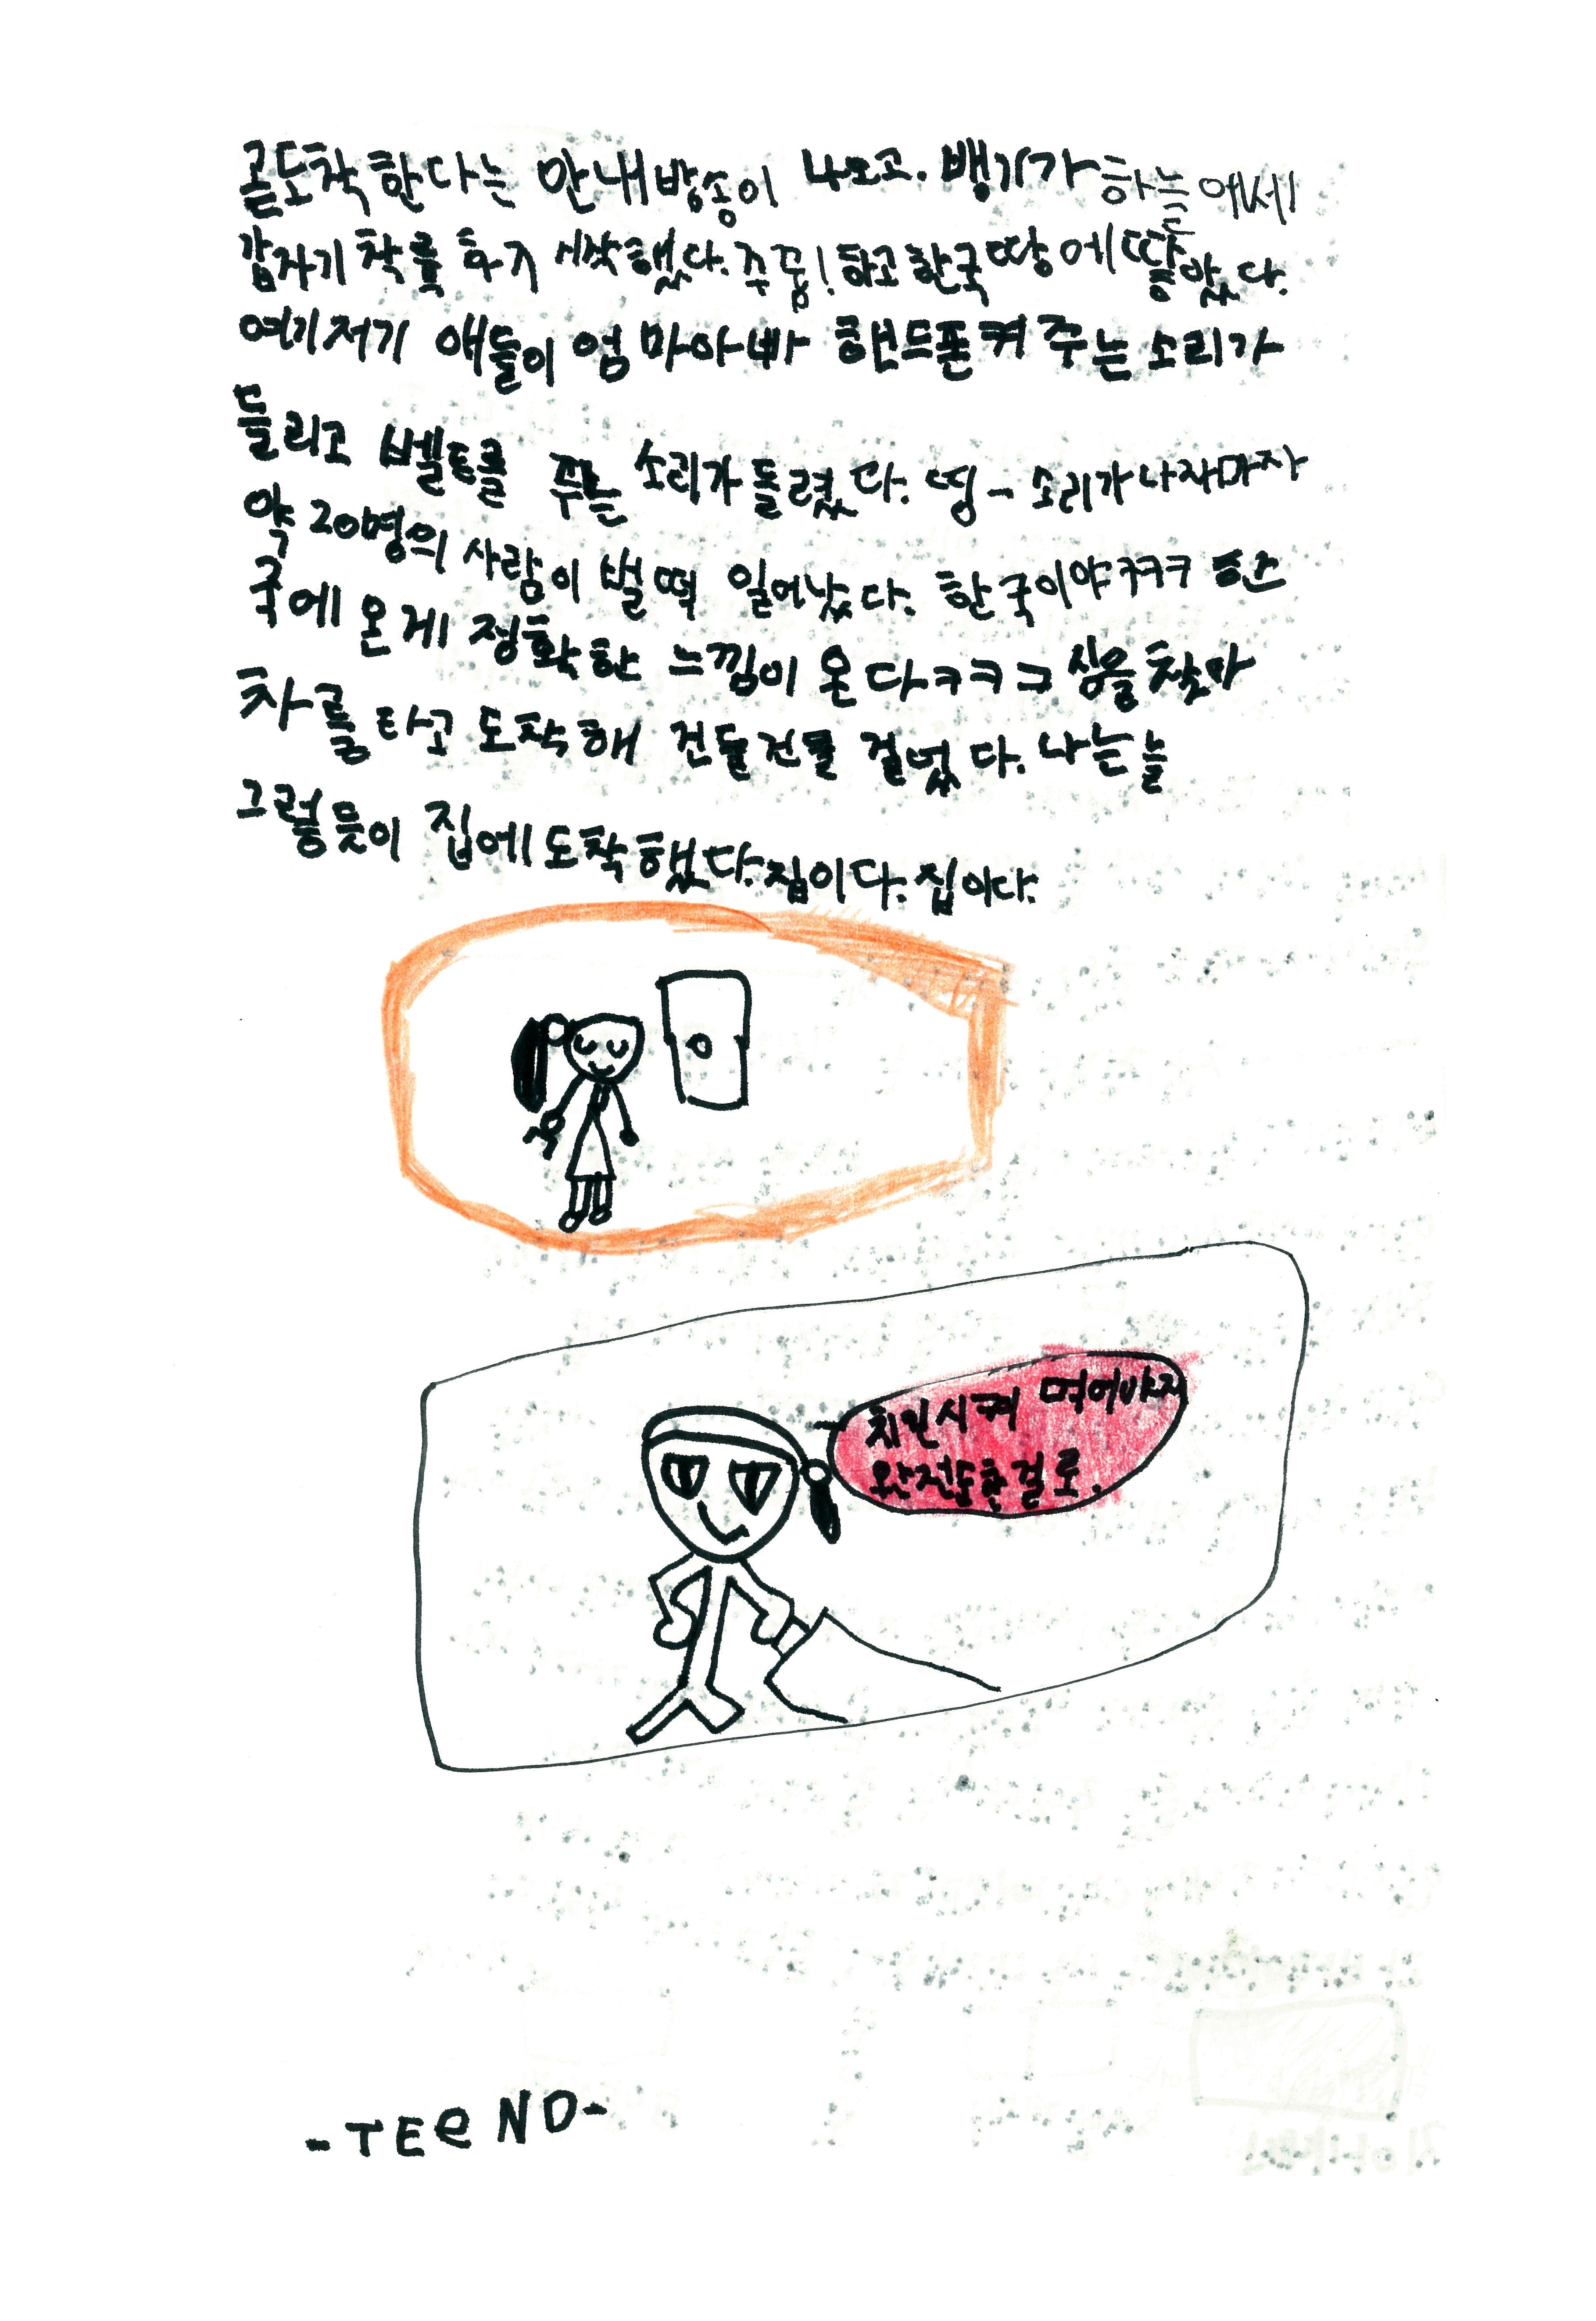 곧도착한다는 안내방송이 나오고. 뱅기가 하늘에세
갑자기 착륙 하기 시작했다. 쿠쿵! 하고 한국땅에 밟았다.
여기저기 애들이 엄마아빠 핸드폰켜주는 소리가
들리고 벨트를 푸는 소리가들렸다. 띵- 소리가나자마자
약 20명의 사람이 벌떡 일어났다. 한국이야ㅋㅋㅋ
국에 온게 정확한 느낌이 온다ㅋㅋㅋ 짐을찾아
차를타고 도착해 건들건들 걸었다. 나는늘
그렇듯이 집에도착했다. 집이다. 집이다.
치킨시켜 먹어야지
완전도한걸로.
-TEeND-